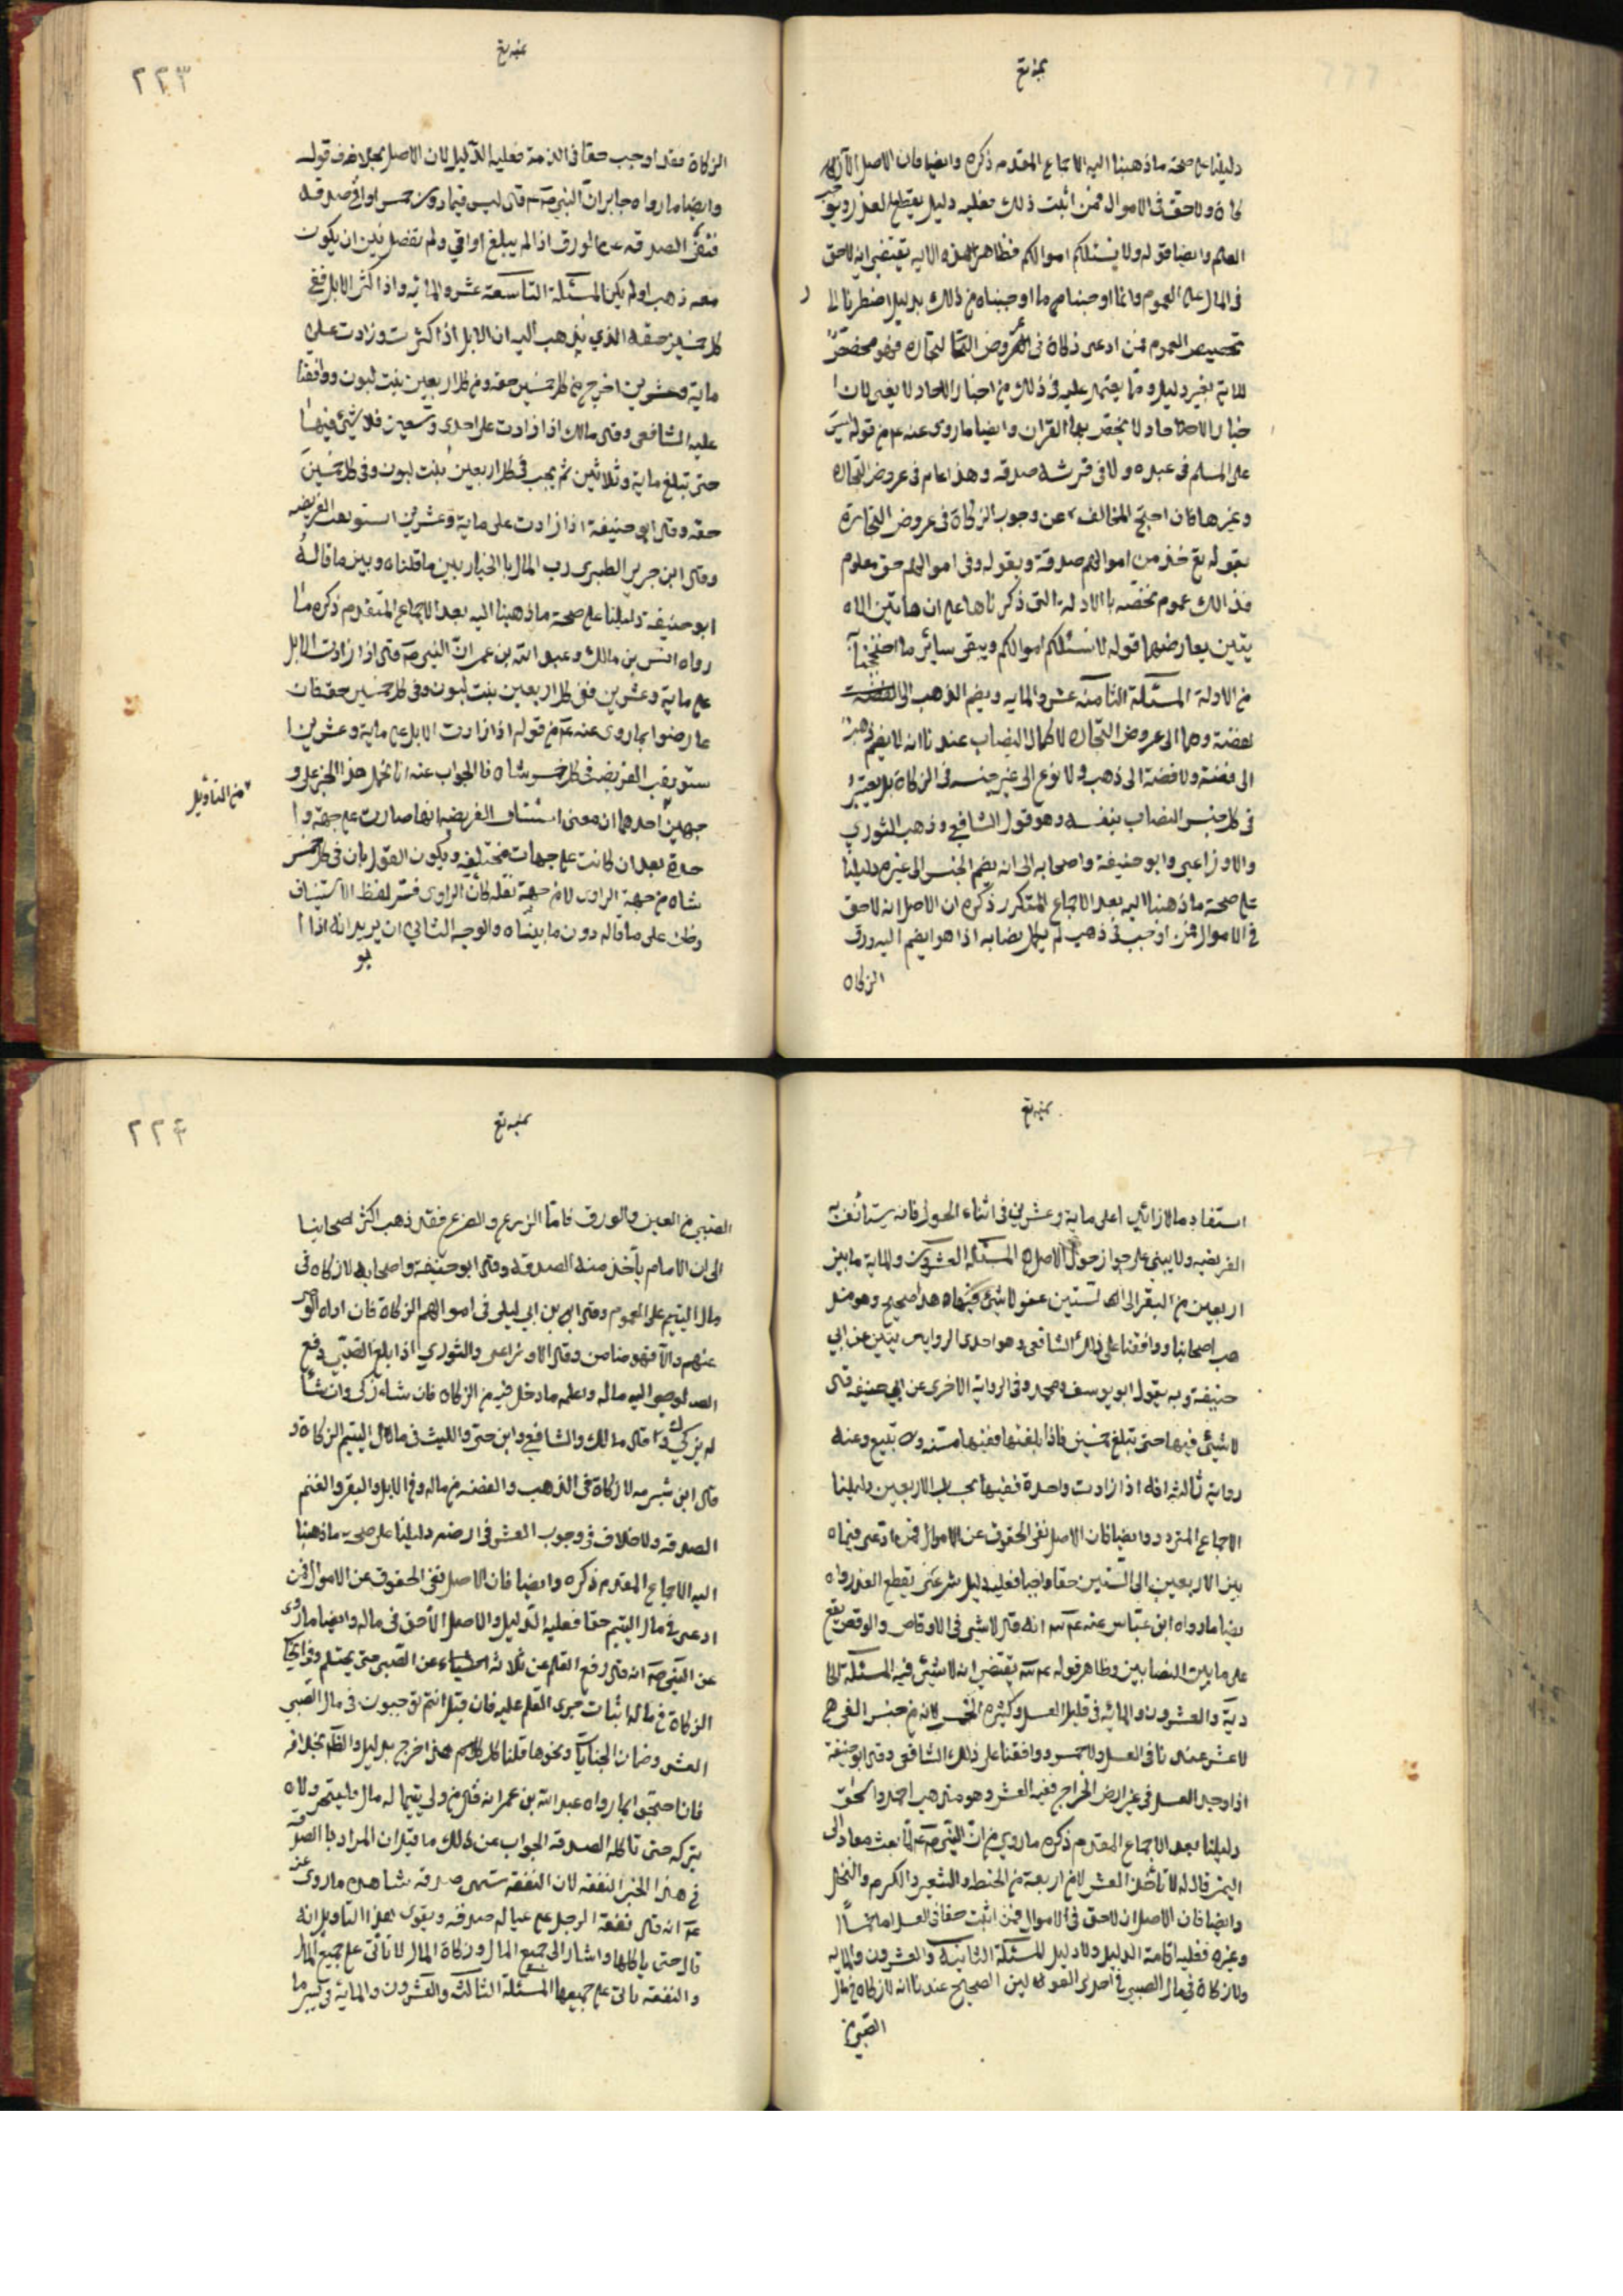 دليلنا على صحة ما ذهبنا اليه الاجماع المتقدم ذكره وايضا فان الاصل الا
كاة ولا حق في الاموال فمن اثبت ذلك فعليه دليل يقطع العذر ويوجب
العلم وايضا قوله ولا يسئلكم اموالكم فظاهر هذه الاية يقتضي انه لا حق
في المال على العموم وانما اوجبنا ما اوجبناه من ذلك بدليل اضطرنا الى
تخصيص العموم فمن ادعى زكاة في عروض التجاره فهو مخصص
للاية بغير دليل وما يعتمد عليه في ذلك من اخبار الاحاد لا يغنى لان ا
خبار الاحاد لا يخص بها القران وايضا ما روى عنه ع م من قوله ليس
على المسلم في عبده ولا في فرسه صدقه وهذا عام في عروض التجاره
وغيرها فان احتج المخالف عن وجوب الزكاة في عروض التجارة
بقوله تع خذ من اموالهم صدقة وبقوله وفى اموالهم حق معلوم
فذالك عموم نخصه باالادلة التى ذكرناها على ان هاتين الاه
يتين يعارضهما قوله لا نسئلكم اموالكم ويبقى سائر ما احتججنا به
من الادلة المسئلة الثامنه عشر والمايه ويضم الذهب الى الفضة
لفضة وهما الى عروض التجاره لاكمال النصاب عندنا انه لا يضم ذهب
الى فضة ولا فضة الى ذهب ولا نوع الى غير جنسه في الزكاة بل يعتبر
في كل جنس النصاب بنفسه وهو قول الشافعي وذهب الثوري
والاوزاعي وابو حنيفة واصحابه الى انه يضم الجنس الى غيره دليلنا
على صحة ما ذهبنا اليه بعد الاجماع المتكرر ذكره ان الاصل انه لا حق
في الاموال فمن اوجب في ذهب لم يكمل نصابه اذا هو ايضم اليه ورق
الزكاه
٢٢٣
الزكاة فقد اوجب حقا في الذمة فعليه الدليل لان الاصل بخلاف قوله
وايضا ما رواه جابر ان النبي ص م قال ليس فيما دون خمس اواق صدقه
فنفى الصدقه عن الورق اذا لم يبلغ اواقي ولم يفصل بين ان يكون
معه ذهب او لم يكن المسئلة التاسعة عشر والمائة واذا كثر الابل ففى
كل خمسين حقه الذي يذهب اليه ان الابل اذا كثرت وزادت على
ماية وعشرين اخرج من كل خمسين حقه ومن كل اربعين بنت لبون ووافقنا
عليه الشافعى وقال مالك اذا زادت على احدى وتسعين فلا شيئ فيها
حتى تبلغ ماية وثلاثين ثم يجب في كل اربعين بنت لبون وفى كل خمسين
حقه وقال ابى حنيفة اذا زادت على ماية وعشرين استونفت الفريضه
وقال ابن جرير الطبرى رب المال باالخيار بين ما قلناه وبين ما قاله
ابو حنيفة دليلنا على صحة ما ذهبنا اليه بعد الاجماع المتقدم ذكره ما
رواه انس بن مالك وعبد الله بن عمر ان النبي ص م قال اذا زادت الابل
على ماية وعشرين ففى كل اربعين بنت لبون وفى كل خمسين حقه فان
عارضوا بما روى عنه ع م من قوله اذا زادت الابل على ماية وعشرين ا
ستونفت الفريضه في كل خمس شاه فالجواب عنه انا نحمل هذا الخبر على و
من التأويل
جهين احدهما ان معنى استيناف الفريضه انها صارت على جهة وا
حدة بعد ان كانت على جهات مختلفه ويكون القول بان في كل خمس
شاه من جهة الراوى لا من جهة نقله كأن الراوى فسر لفظ الاستيناف
وظن على ما قاله دون ما بيناه والوجه الثاني ان يريد انه اذا ا
استفاد مالا زائدا على ماية وعشرين في اثناء الحول فانه يستأنف به
الفريضه ولا يبنى على جواز حول الاصل المسئله العشرون والماية ما بين
اربعين من البقر الى الستين عفو لا شيئ فيه هذا صحيح وهو مذ
هب اصحابنا ووافقنا على ذلك الشافعى وهو احدى الروايتين عن ابى
حنيفة وبه يقول ابو يوسف ومحمد وفى الرواية الاخرى عن ابى حنيفه قال
لا شيئ فيها حتى تبلغ خمسين فاذا بلغتها ففيها مسنه وربع تبيع وعنه
رواية ثالثه انه اذا زادت واحدة ففيها بحساب الاربعين دليلنا
الاجماع المتردد وايضا فان الاصل نفى الحقوق عن الاموال فمن ادعى فيما
بين الاربعين الى الستين حقا واجبا فعليه دليل شرعى يقطع العذر وا
يضا ما رواه ابن عباس عنه ع م انه قال لا شي في الاوقاص والوقص يقع
على ما بين النصابين وظاهر قوله ع م يقتضي انه لا شيئ فيه المسئلة الحا
دية والعشرون والمائه في قليل العسل وكثيره الخمس لانه من جنس الفيء
لا عشر عندنا في العسل ولا خمس ووافقنا على ذلك الشافعى وقال ابو حنيفة
اذا وجد العسل في غير ارض الخراج ففيه العشر وهو مذهب احمد واسحق
دليلنا بعد الاجماع المتقدم ذكره ما روي من ان النبي ص م لما بعث معاذ الى
اليمن قال له لا تأخذ العشر الا من اربعة من الحنطه والشعير والكرم والنخل
وايضا فان الاصل ان لا حق في الاموال فمن اثبت حقا في العسل اما خمسا
وغيره فعليه اقامة الدليل ولا دليل المسئلة الثانية والعشرون والمايه
ولا زكاة في مال الصبي في احدى القولين الصحيح عندنا انه لا زكاه في مال
الصبي من
٢٢٤
الصبي من العين والورق فاما الزرع والضرع فقد ذهب اكثر اصحابنا
الى ان الامام يأخذ منه الصدقه وقال ابو حنيفة واصحابه لا زكاه في
مال اليتيم على العموم وقال ابن ابي ليلى في اموالهم الزكاة فان اداه الوصى
عنهم والا فهو ضامن وقال الاوزاعى والثوري اذا بلغ الصبي دفع
الوصى اليه ماله واعلمه ما دخل فيه من الزكاه فان شاء زكى وان شاء
لم يزكى وقال مالك والشافعي وابن حي والليث في مال اليتيم الزكاة و
قال ابن شبرمه لا زكاة في الذهب والفضه من ماله وفي الابل والبقر والغنم
الصدقه ولا خلاف في وجوب العشر في ارضه دليلنا على صحه ما ذهبنا
اليه الاجماع المتقدم ذكره وايضا فان الاصل نفى الحقوق عن الاموال فمن
ادعى في مال اليتيم حقا فعليه الدليل والاصل الا حق في ماله وايضا ما روى
عن النبى ص م انه قال رفع القلم عن ثلاثه اشياء عن الصبى حتى يحتلم وفى ايجاب
الزكاة في ماله اثبات جرى القلم عليه فان قيل انتم توجبون في مال الصبي
العشر وضمان الجنايات ونحوها قلنا كل ذلك خرج بدليل والظاهر بخلافه
فان احتجوا بما رواه عبد الله بن عمر انه قال من ولي يتيما له مال فليتجر ولا
يتركه حتى تاكله الصدقه الجواب عن ذلك ما قيل ان المراد باالصدقه
في هذا الخبر النفقه لان النفقه تسمى صدقه شاهده ما روى عنه
ع م انه قال نفقة الرجل على عياله صدقه ويقوى هذا التاويل انه
قال حتى ياكلها واشار الى جميع المال وزكاة المال لا تأتى على جميع المال
والنفقه تأتى على جميعها المسئلة الثالثة والعشرون والماية في كثير ما